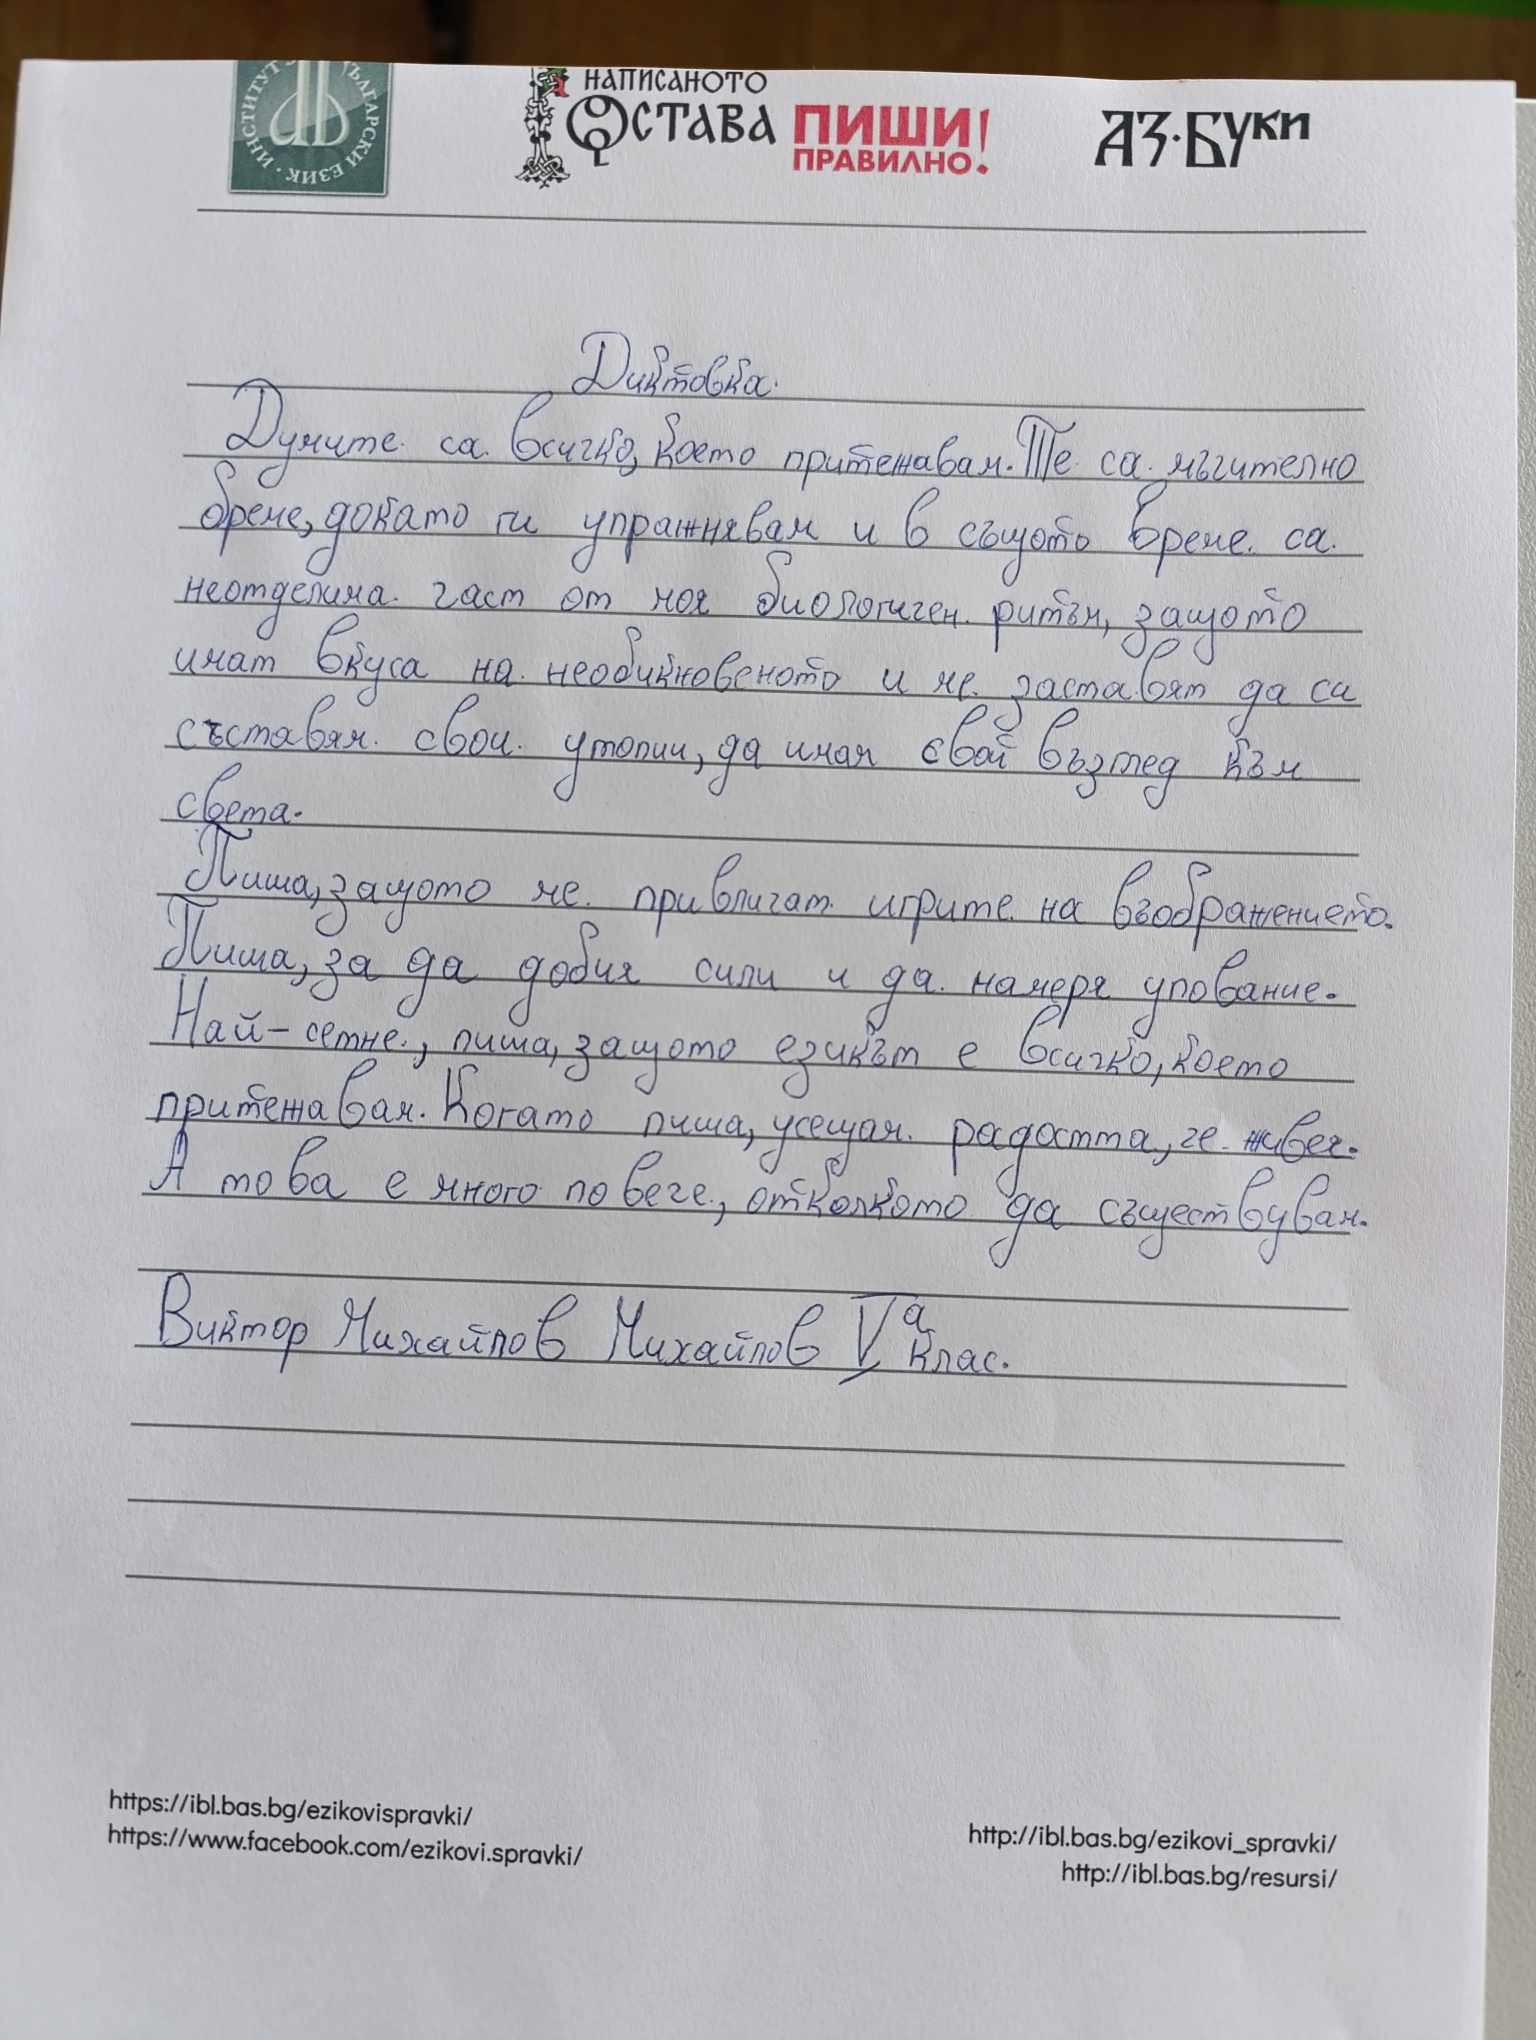 ИНСТИТУТ ЗА БЪЛГАРСКИ ЕЗИК
НАПИСАНОТО
ОСТАВА
ПИШИ
ПРАВИЛНО!
АЗ·БУКИ
Диктовка.
Думите са всичко, което притежавам. Те са мъчително
бреме, докато ги упражнявам и в същото време са
неотделима част от моя биологичен ритъм, защото
имат вкуса на необикновеното и ме заставят да си
съставям свои утопии, да имам свой възглед към
света.
Пиша, защото ме привличат игрите на въображението.
Пиша, за да добия сили и да намеря упование.
Най-сетне, пиша, защото езикът е всичко, което
притежавам. Когато пиша, усещам радостта, че живея.
А това е много повече, отколкото да съществувам.
Виктор Михайлов Михайлов Vа клас.
https://ibl.bas.bg/ezikovispravki/
https://www.facebook.com/ezikovi.spravki/
http://ibl.bas.bg/ezikovi_spravki/
http://ibl.bas.bg/resursi/